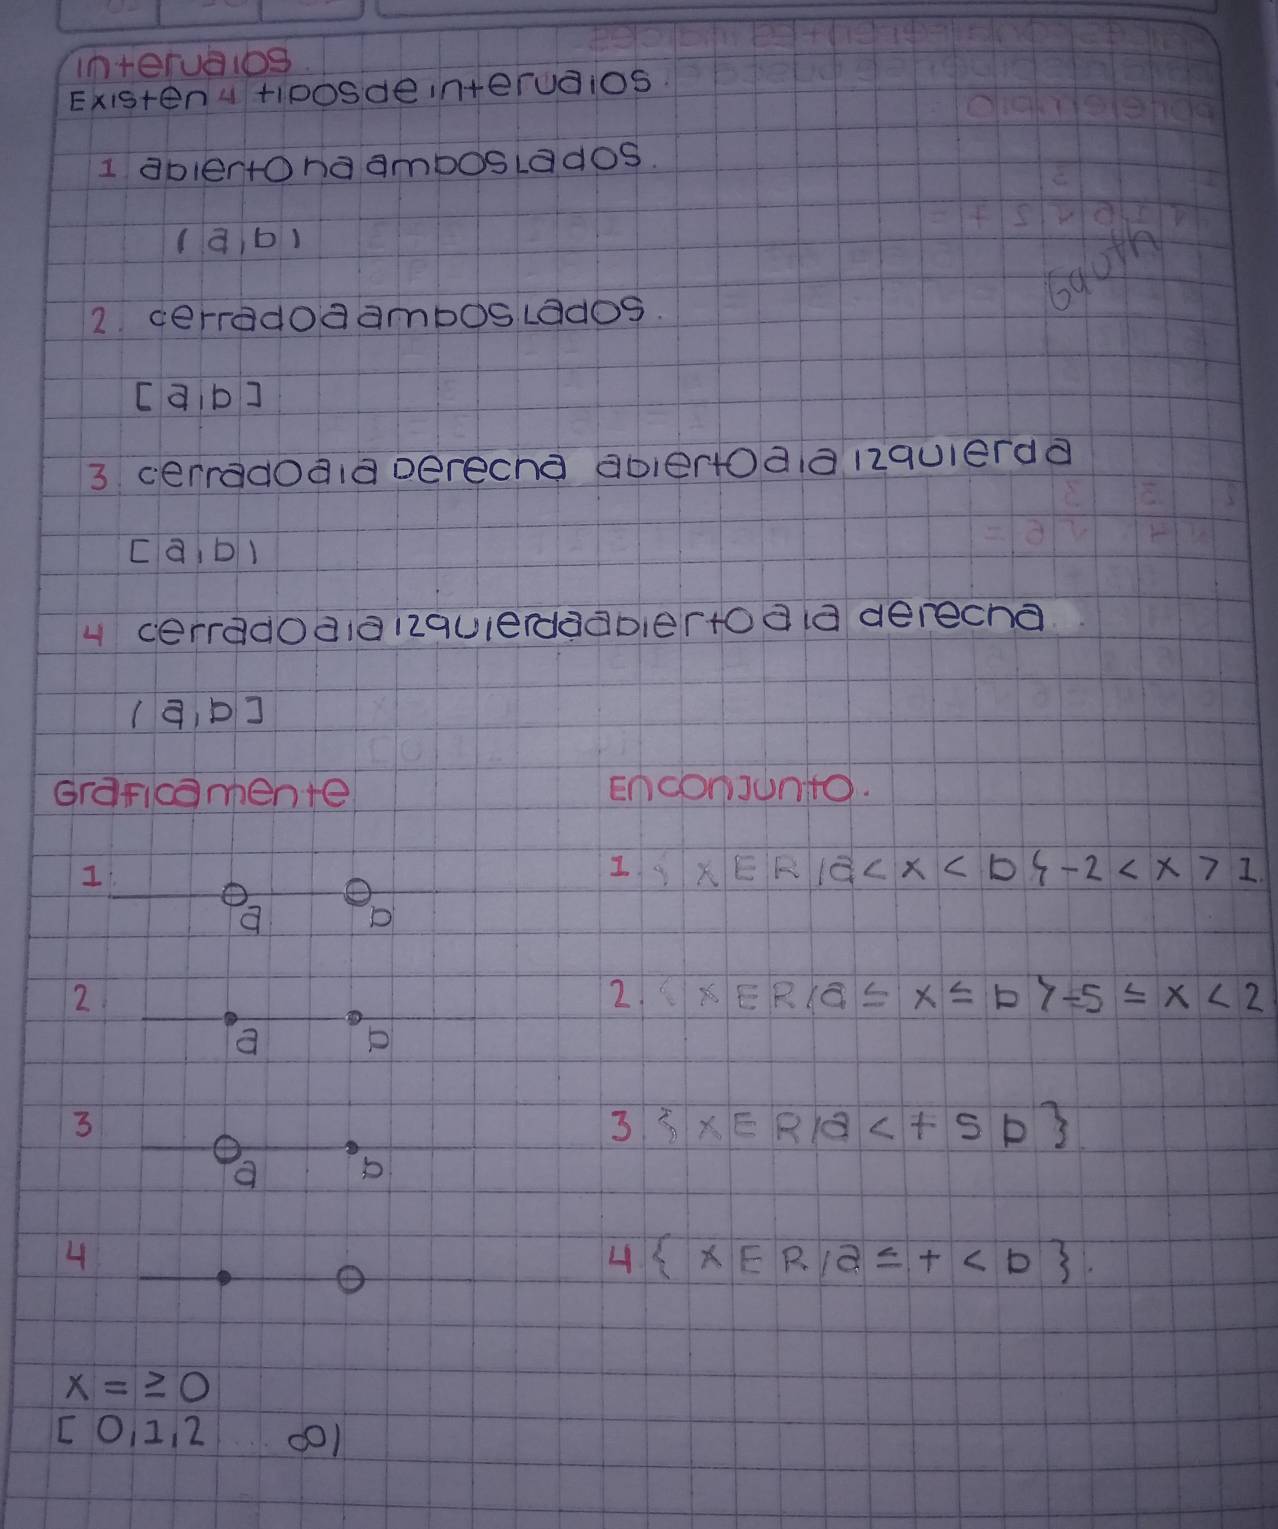 intervalos
Existen 4 tiposdeintervalos.
1 abiertohaamboslados.
(a,b)
2. cerradoaamboslados.
[a,b]
3. cerradoala Derecha abiertoala izquierda
[a,b)
4 cerradoalaizquierdaabiertoala derecha.
(a,b]
Graficamente
Enconjunto.
1.
a b
1. { x E R /a < x < b } -2 < x > 1.
2.
a b
2. { x E R /a ≤ x ≤ b } -5 ≤ x < 2
3
a b
3 { x E R /a < + S b }
4
4 { x E R /a ≤ + < b }.
x = ≥ 0
[ 0,1,2 ... ∞)
Gauth